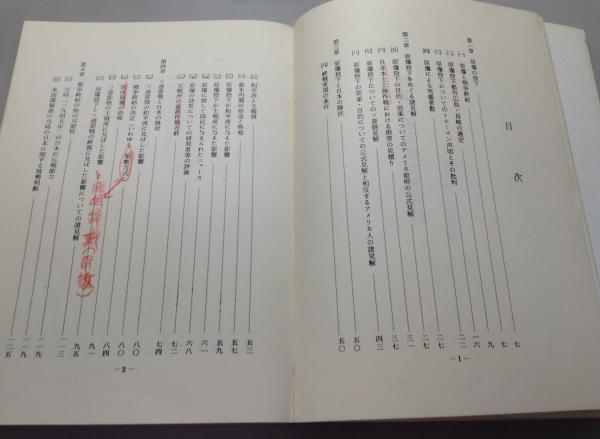 目次
第一章 原爆の投下 七
(一) 原爆と戦争終結 七
(二) 原爆投下都市広島・長崎の選定 九
(三) 原爆投下についてのトルーマン声明とその批判 一六
(四) 原爆による死傷者数 二二
第二章 原爆投下をめぐる諸見解 二七
(一) 原爆投下の目的・効果についてのアメリカ政府の公式見解 二七
(二) 日本本土上陸作戦における損害の見積り 三一
(三) 原爆投下についてのソ連側見解 三七
(四) 原爆投下の効果・目的についての公式見解と相反するアメリカ人の諸見解 四三
第三章 原爆投下と日本の降伏 五〇
(一) 終戦実現の条件 五〇
—1—
(二) 和平派と主戦派 五三
(三) 鈴木内閣の使命と性格 五七
(四) 原爆投下が和平派に与えた影響 五九
(五) 原爆投下が主戦派に与えた影響 六一
(六) 原爆に関して国民に与えられたニュース 六八
(七) 原爆の効果についての研究者等の評価 七二
(八) 主戦派の最終作戦方針 七四
第四章 ソ連参戦と日本の降伏
(一) ソ連参戦の和平派に及ぼした影響 八〇
(二) 戦争終結の決定(いわゆる聖断方式) 八〇
(三) 国体護持の 八四
(四) ソ連参戦の 九一
第五章 原爆投下・ソ連参戦の終戦に及ぼした影響についての諸見解 九五
(一) 戦争終結の他の可能性 一一三
(二) 当時(一九四五年)の日本の抗戦能力 一一九
(三) 米国諜報機関の当時の日本に関する情勢判断 一二五
—2—